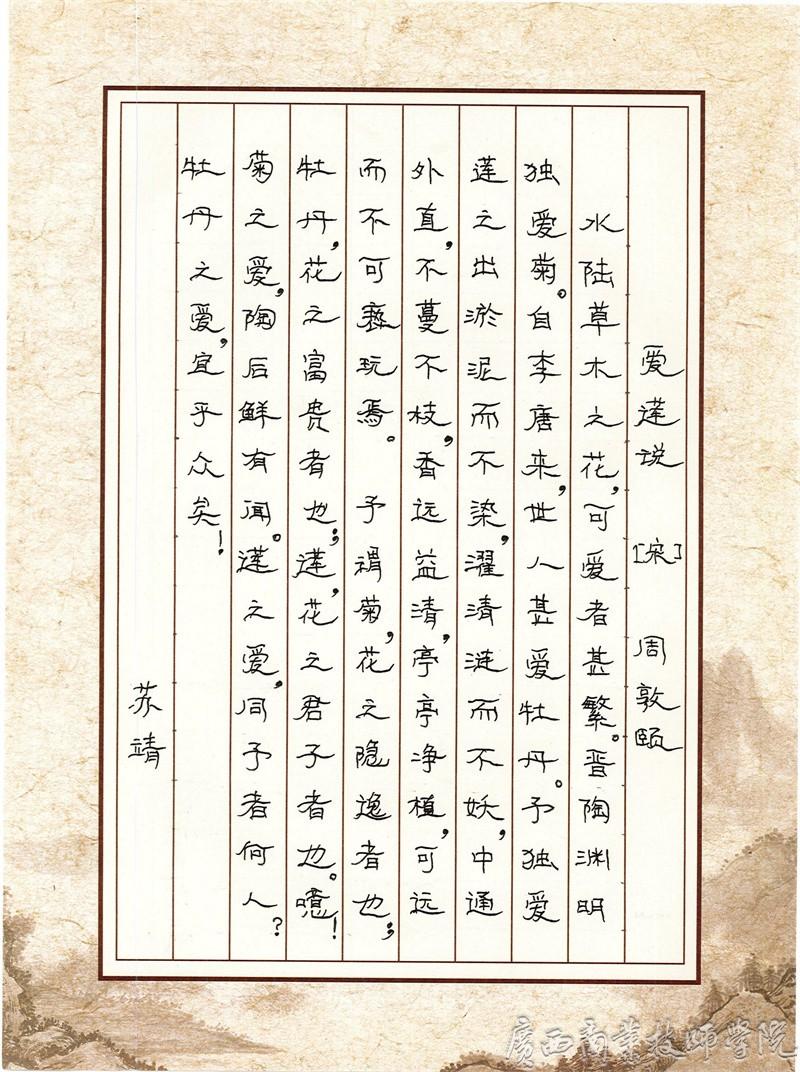 爱莲说 [宋] 周敦颐
水陆草木之花，可爱者甚繁。晋陶渊明
独爱菊。自李唐来，世人甚爱牡丹。予独爱
莲之出淤泥而不染，濯清涟而不妖，中通
外直，不蔓不枝，香远益清，亭亭净植，可远
而不可亵玩焉。予谓菊，花之隐逸者也；
牡丹，花之富贵者也；莲，花之君子者也。噫！
菊之爱，陶后鲜有闻。莲之爱，同予者何人？
牡丹之爱，宜乎众矣！
苏靖
廣西商業技師學院